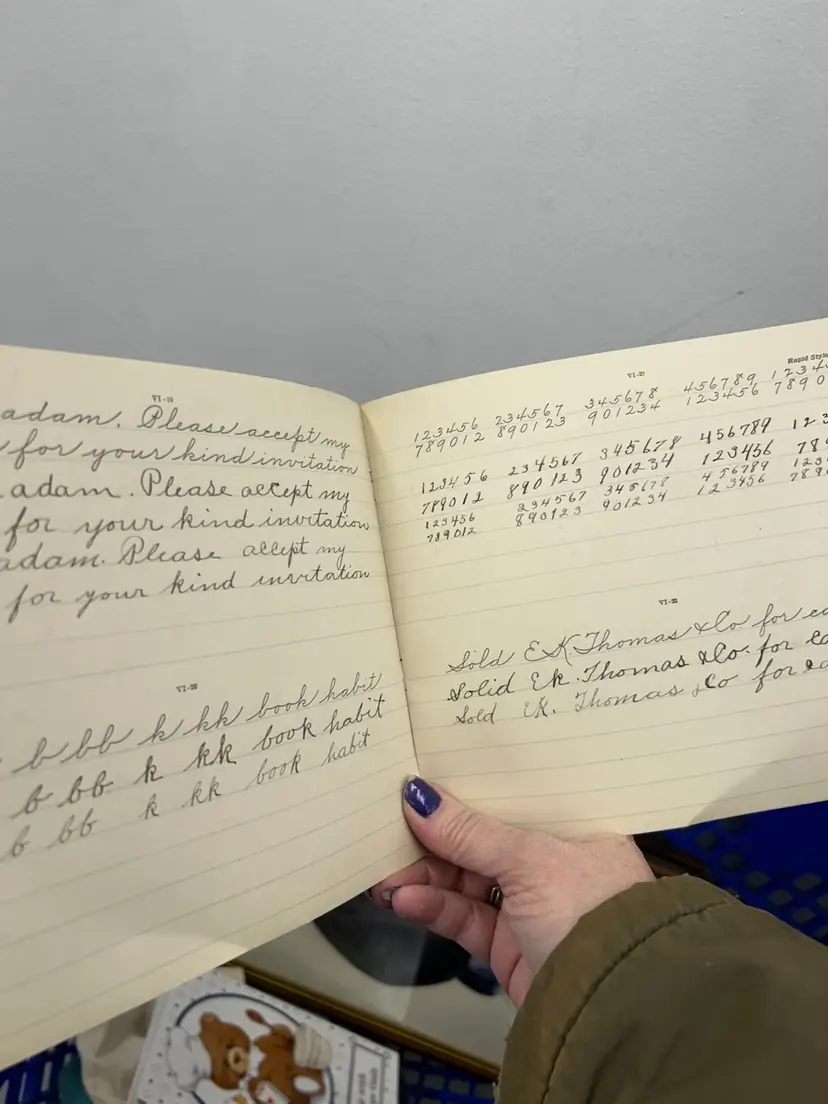 VI-19
adam. Please accept my
for your kind invitation
adam. Please accept my
for your kind invitation
adam. Please accept my
for your kind invitation
VI-20
b bb k kk book habit
b bb k kk book habit
b bb k kk book habit
VI-21
Rapid Style
123456 234567 345678 456789 1234
789012 890123 901234 123456 7890
123456 234567 345678 456789 123
789012 890123 901234 123456 78
123456 234567 345678 456789 123
789012 890123 901234 123456 789
VI-22
Sold E.K. Thomas & Co for
Solid Ek. Thomas & Co. for
Sold EK. Thomas & Co for